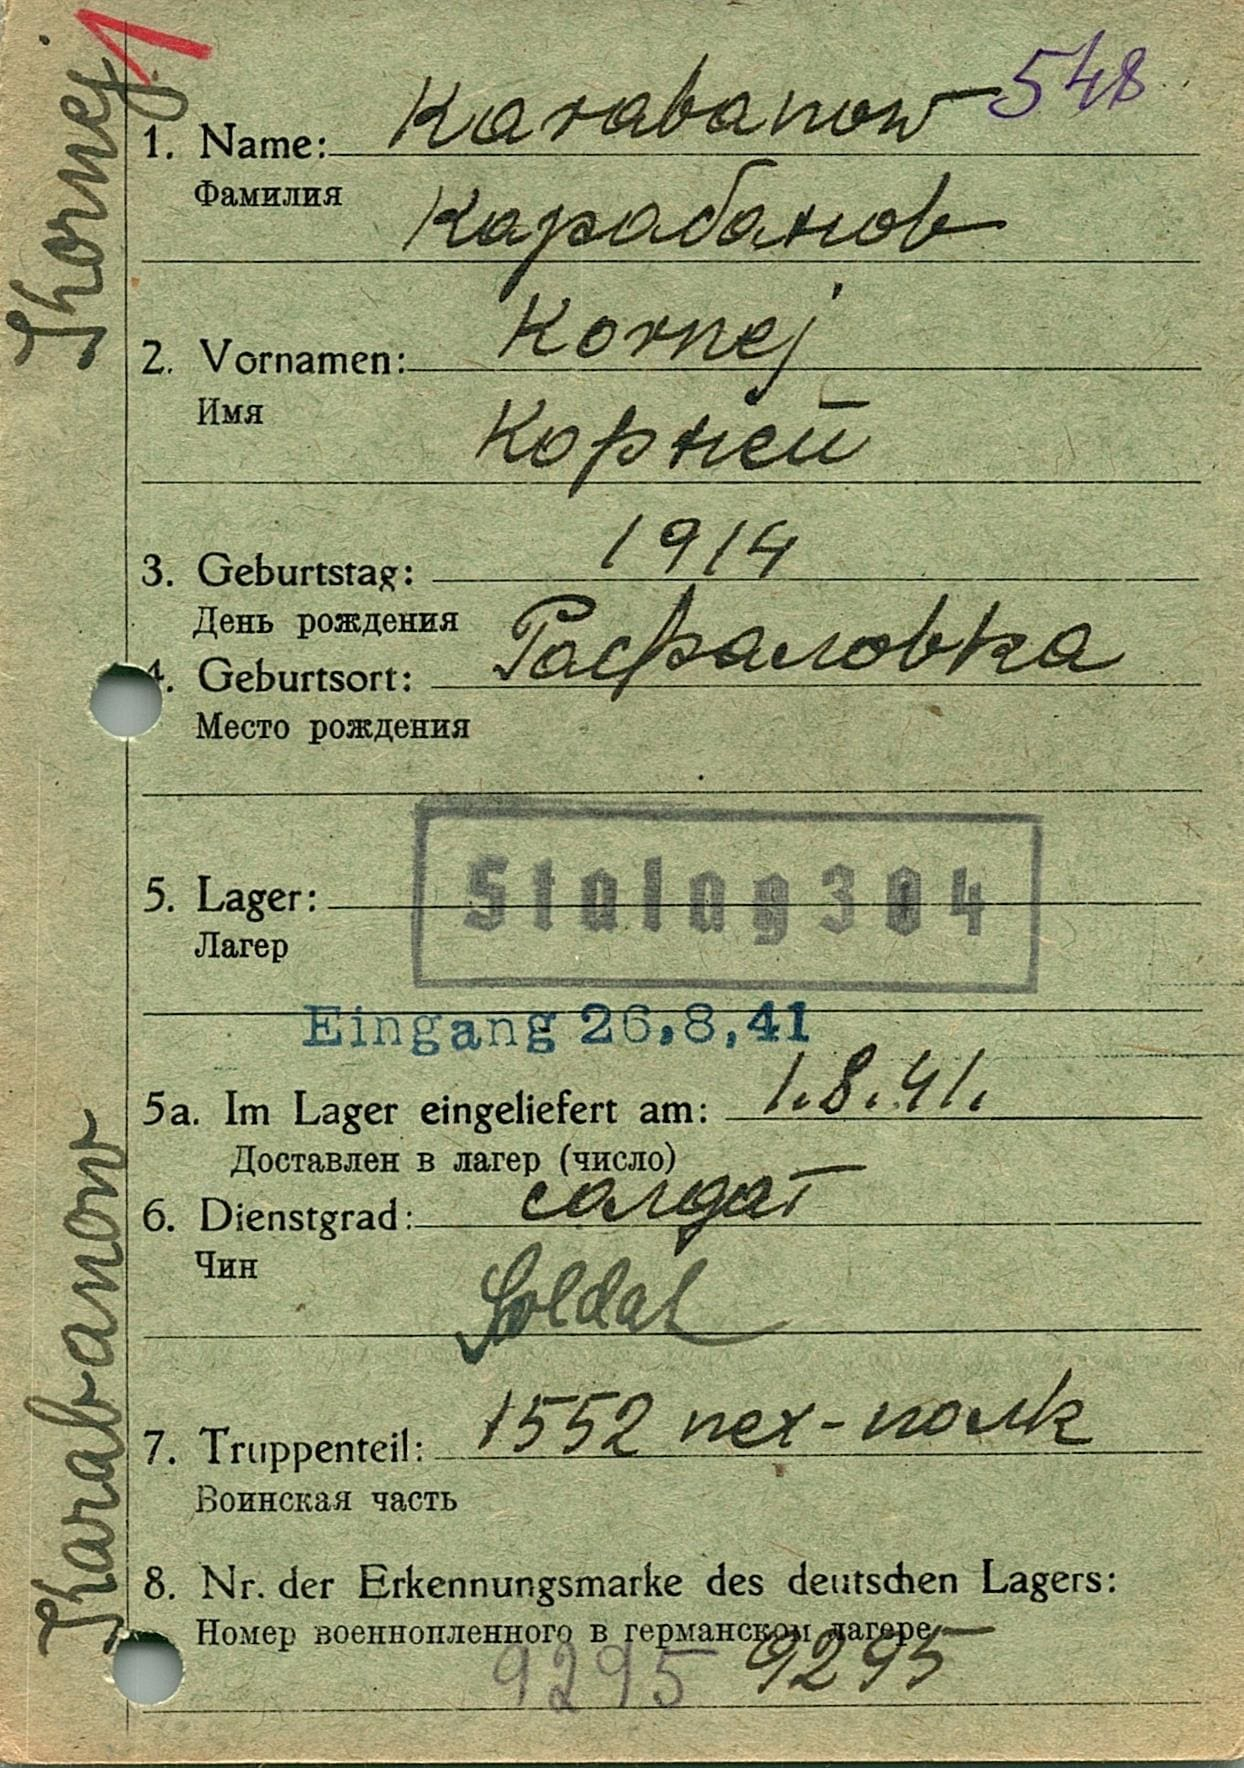 Kornej
548
1. Name: Karabanow
Фамилия
Карабанов
2. Vornamen: Kornej
Имя
Корней
3. Geburtstag: 1914
День рождения
4. Geburtsort: Расфаловка
Место рождения
5. Lager: Stalag 304
Лагер
Eingang 26,8,41
5a. Im Lager eingeliefert am: 1.8.41.
Доставлен в лагер (число)
6. Dienstgrad: солдат
Чин
Soldat
7. Truppenteil: 1552 пех-полк
Воинская часть
Karabanow
8. Nr. der Erkennungsmarke des deutschen Lagers:
Номер военнопленного в германском лагере
9295 9295